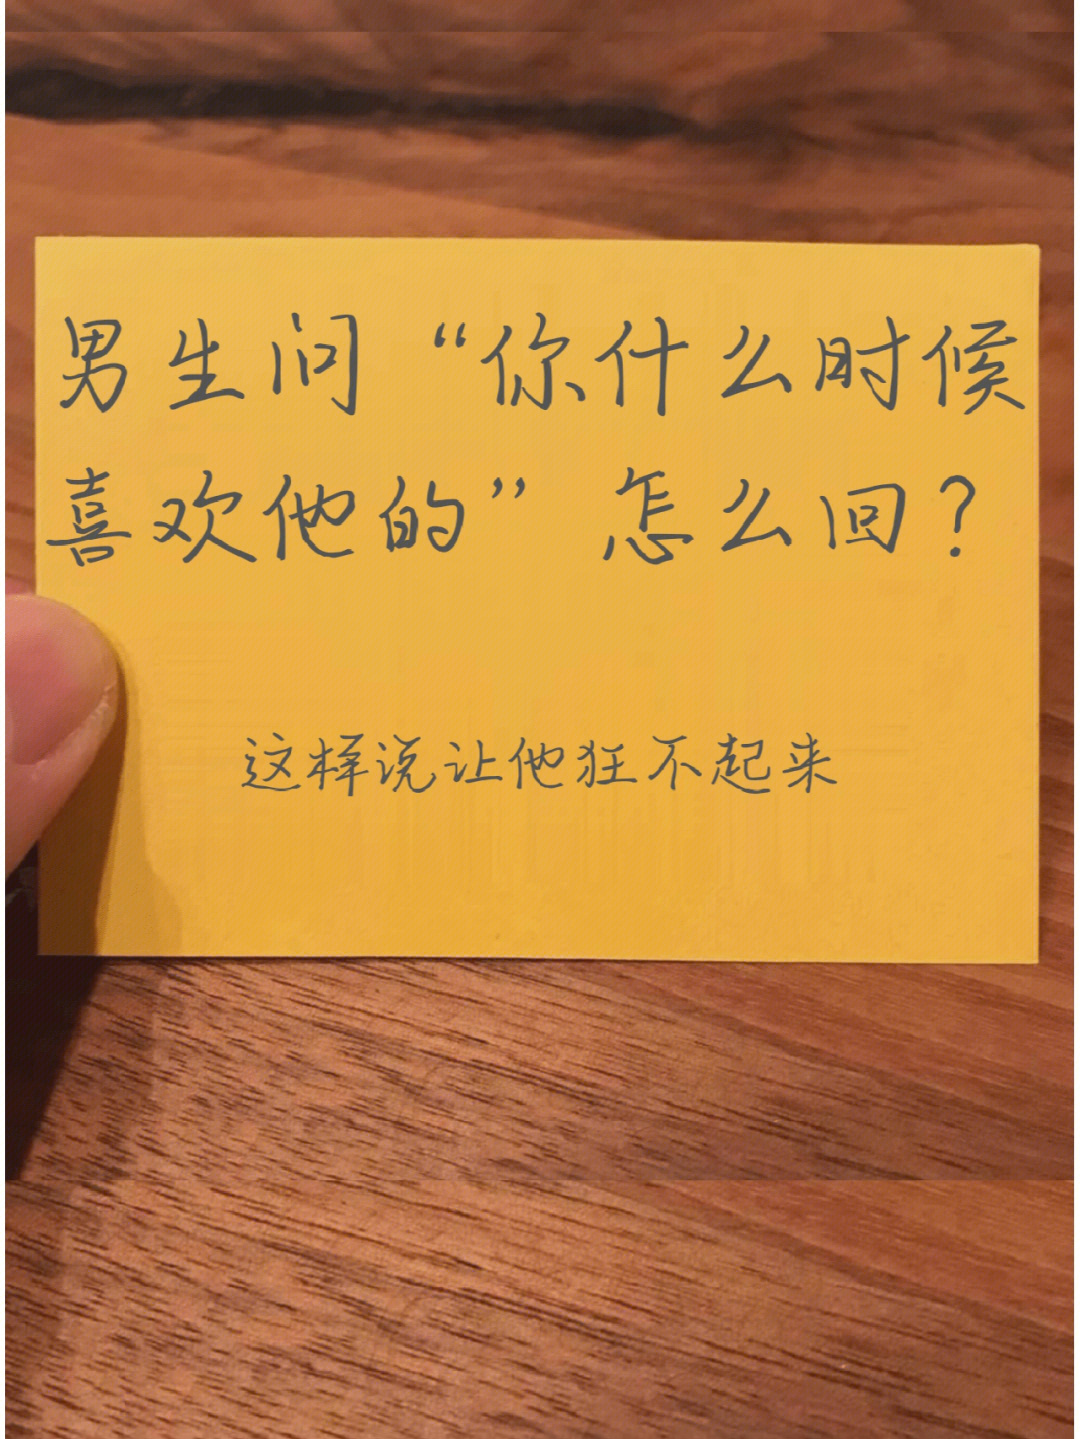 男生问“你什么时候
喜欢他的”怎么回？
这样说让他狂不起来